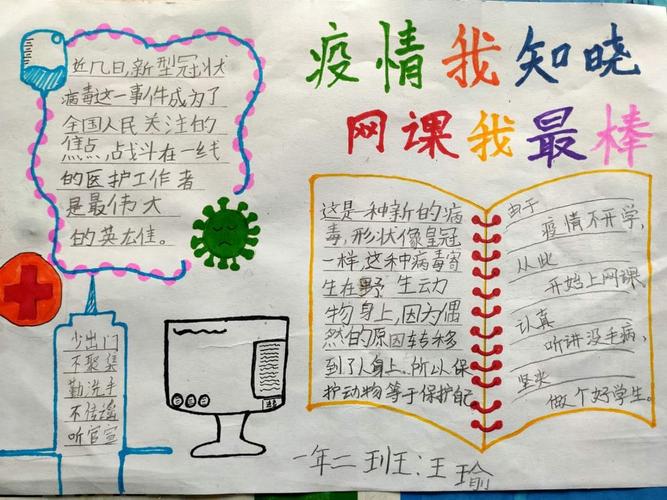 疫情我知晓
网课我最棒
近几日,新型冠状
病毒这一事件成为了
全国人民关注的
焦点,占战斗在一线
的医护工作者
是最伟大
的英雄佳。
少出门
不聚集
勤洗手
不传谣
听官宣
这是一种新的病
毒,形状像皇冠
一样,这种病毒寄
生在野生动
物身上,因为偶
然的原因转移
到了人身上.所以保
护动物等于保护自己
由于
疫情不开学,
从此
开始上网课
认真
听讲没毛病,
坚决
做个好学生。
一年二班:王瑜